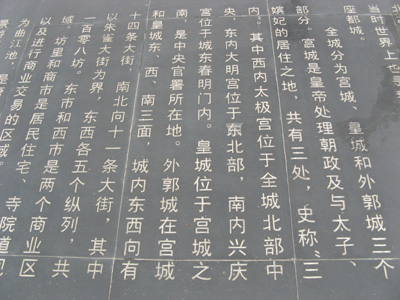 当时世界上也
座都城。
全城分为宫城、皇城和外郭城三个
部分。宫城是皇帝处理朝政及与太子、
嫔妃的居住之地，共有三处，史称“三
内”。其中西内太极宫位于全城北部中
央，东内大明宫位于东北部，南内兴庆
宫位于城东春明门内。皇城位于宫城之
南，是中央官署所在地。外郭城在宫城
和皇城东、西、南三面，城内东西向有
十四条大街，南北向十一条大街，其中
以朱雀大街为界，东西各五个纵列，共
一百零八坊。东市和西市是两个商业区
域，坊里和商市是居民住宅、寺院道
以及进行商业交易的区域。
为曲江池，是